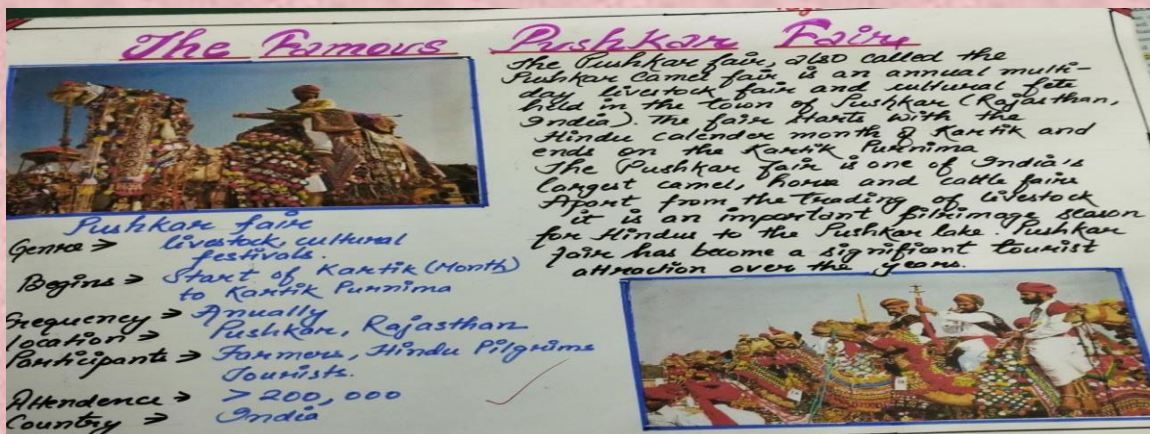 The Famous Pushkar Fair
The Pushkar fair, also called the
Pushkar Camel fair is an annual multi-
day livestock fair and cultural fete
held in the town of Pushkar (Rajasthan,
India). The fair starts with the
Hindu calender month of Kartik and
ends on the Kartik Purnima
The Pushkar fair is one of India's
largest camel, horse and cattle fairs
Apart from the trading of livestock
it is an important pilrimage season
for Hindus to the Pushkar lake. Pushkar
fair has become a significant tourist
attraction over the years.
Pushkar fair
Genre → livestock, cultural
festivals.
Begins → Start of Kartik (Month)
to Kartik Purnima
Frequency → Annually
location → Pushkar, Rajasthan
Participants → Farmers, Hindu Pilgrims
Tourists.
Attendence → > 200,000
Country → India